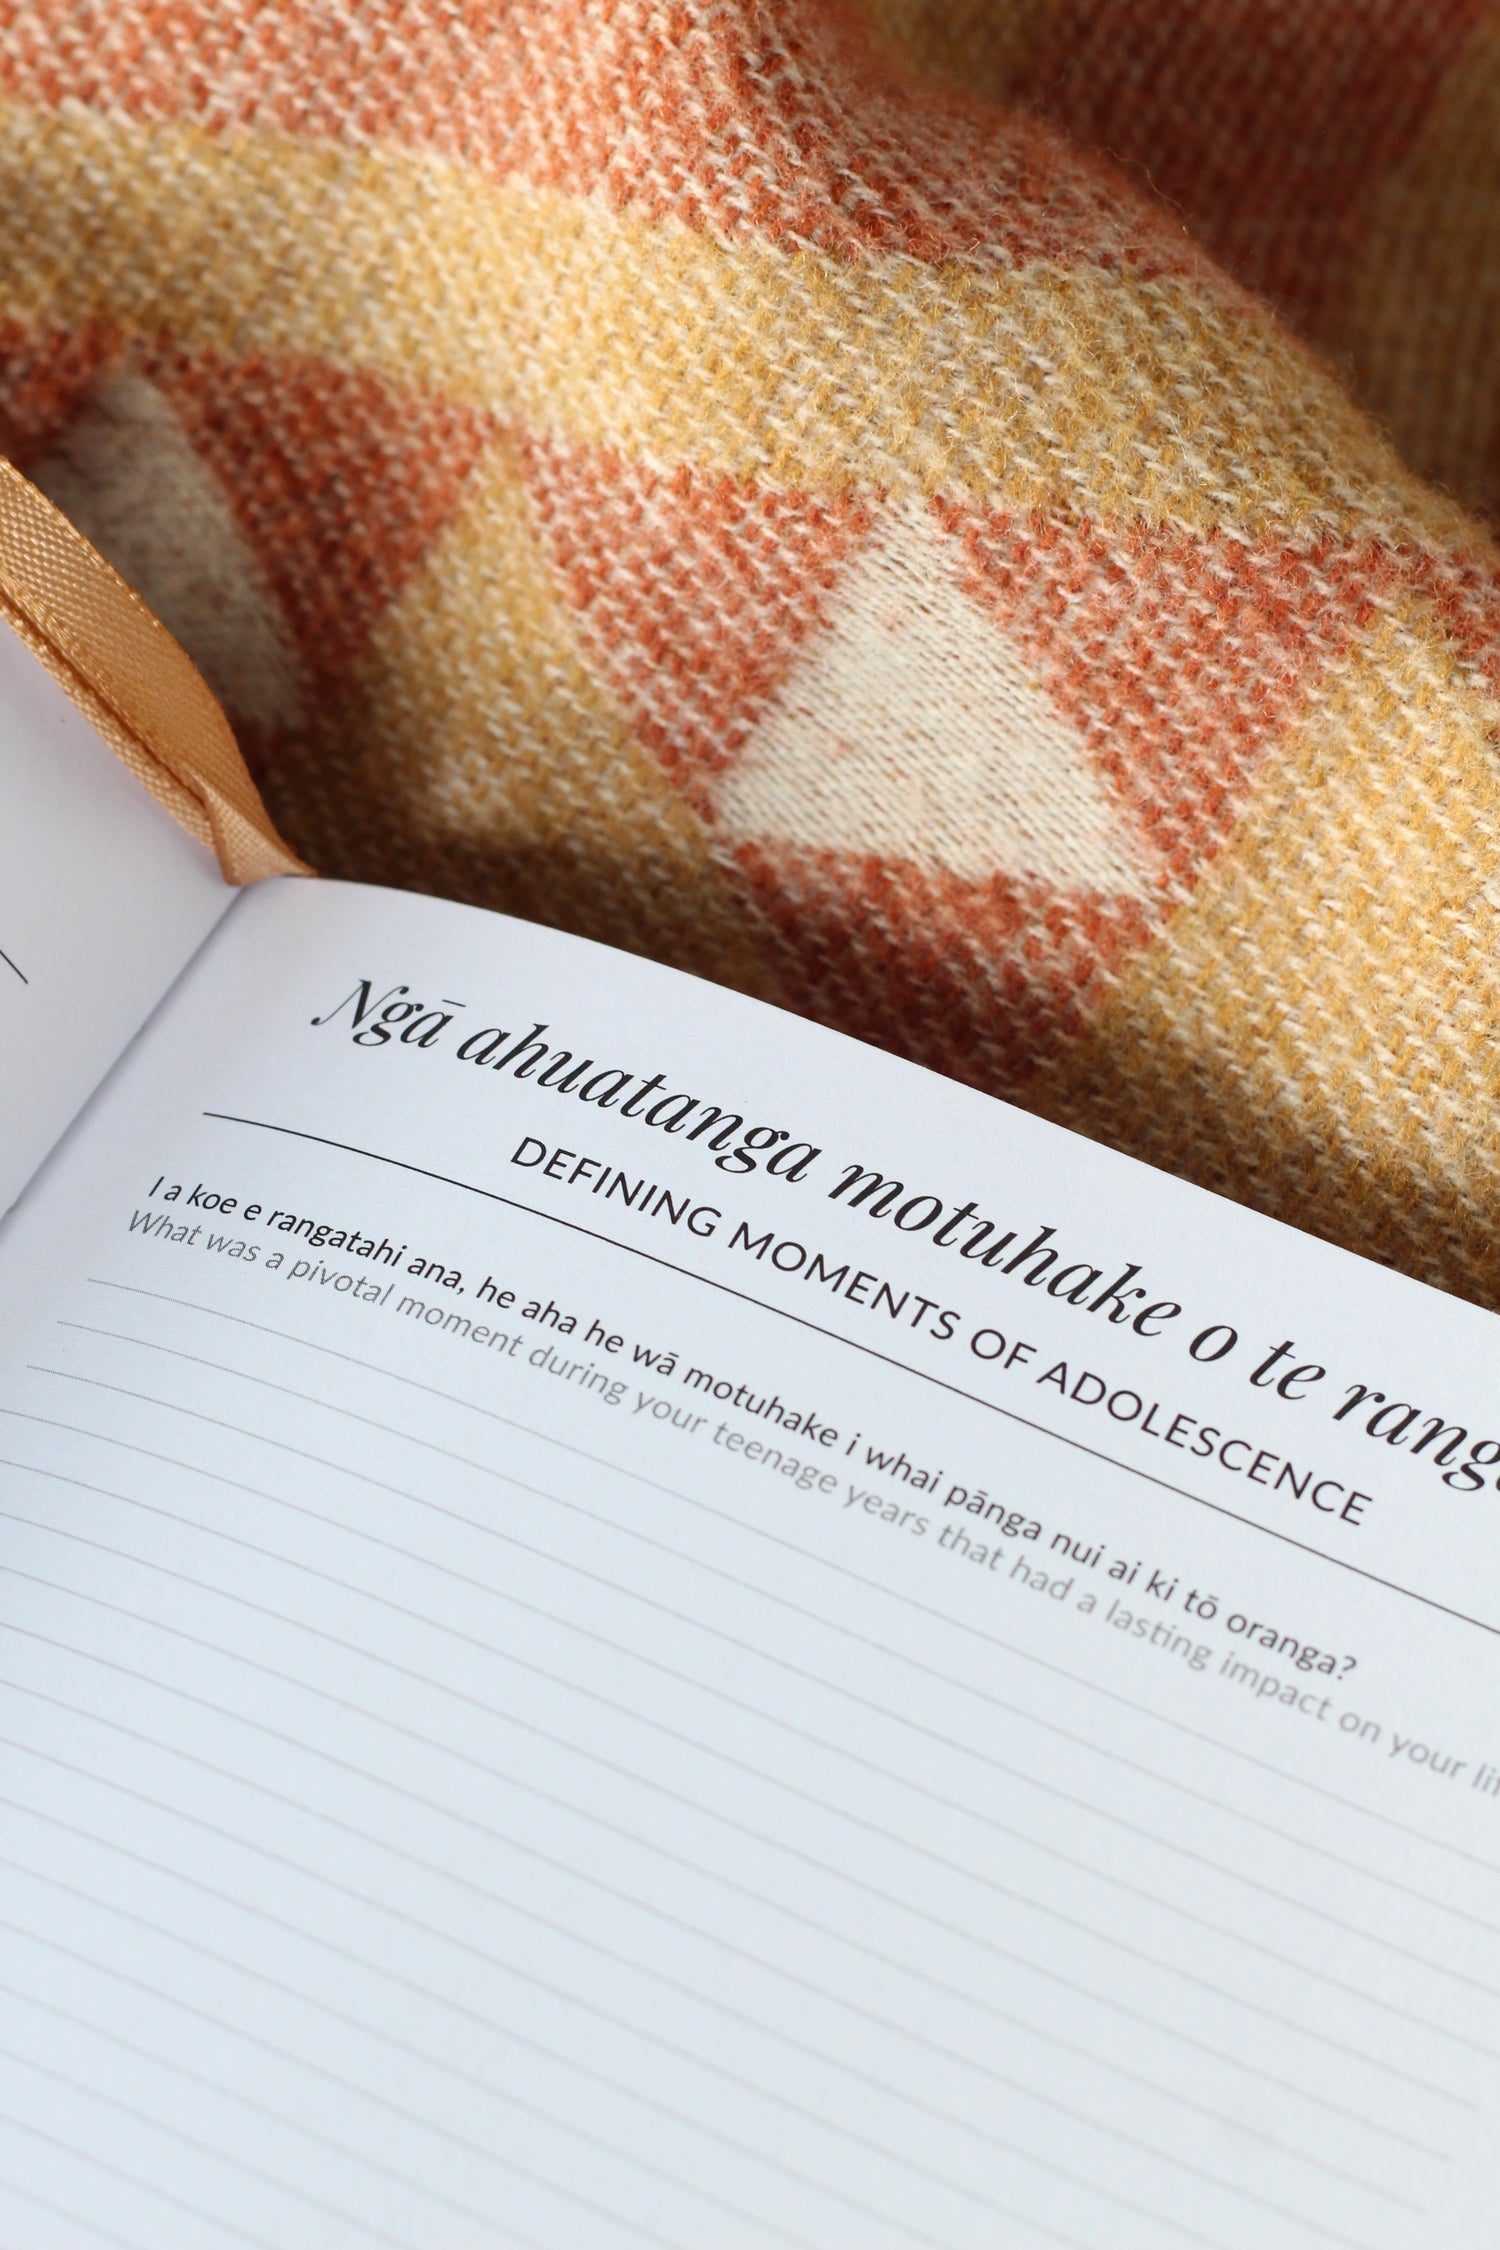 Ngā ahuatanga motuhake o te
DEFINING MOMENTS OF ADOLESCENCE
I a koe e rangatahi ana, he aha he wā motuhake i whai pānga nui ai ki tō oranga?
What was a pivotal moment during your teenage years that had a lasting impact on your